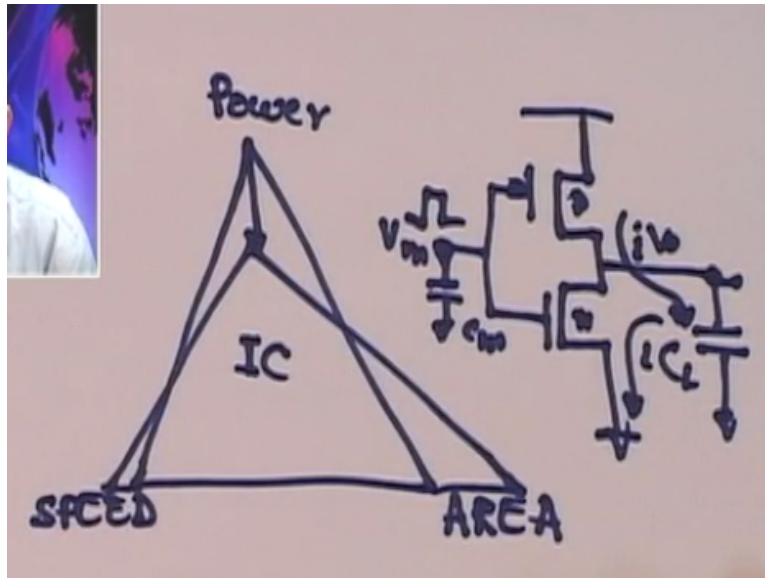 Power
IC
SPEED
AREA
Vin
Cin
p
n
i
Vo
i
CL